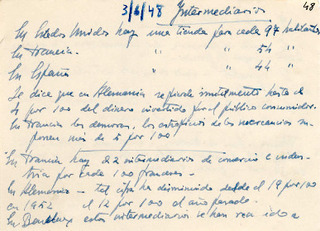 3/6/48 Intermediarios 48
En Estados Unidos hay una tienda por cada 94 habitantes
En Francia " " 54 "
En España " " 44 "
Se dice que en Alemania se puede hasta el
4 por 100 del dinero invertido por el público consumidor.
En Francia los de las mercancias su-
ponen mas de 15 por 100
En Francia hay 22 intermediarios de comercio e indus-
tria por cada 100 franceses.
En Alemania - tal cifra ha disminuido desde el 19 por 100
en 1952 al 12 por 100 el año pasado.
En Benelux estos intermediarios se han reducido a